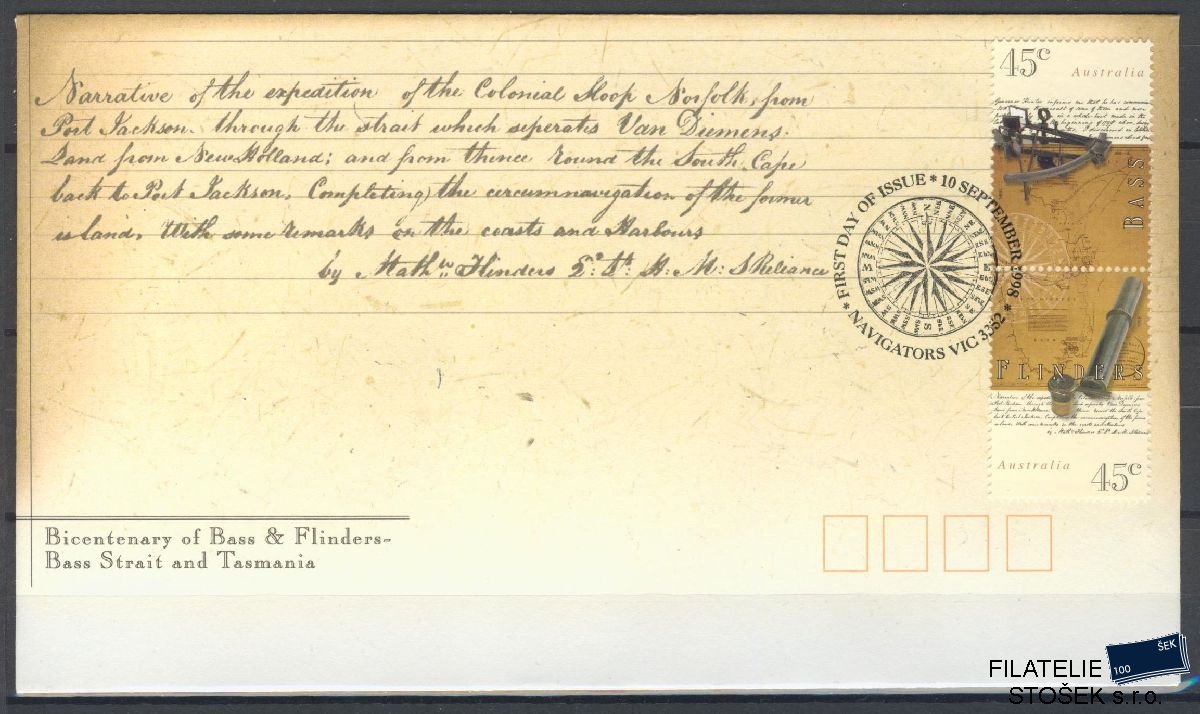 Narrative of the expedition of the Colonial Sloop Norfolk, from
Port Jackson. through the strait which seperates Van Diemens.
Land from New Holland; and from thence round the South Cape
back to Port Jackson. Completing the circumnavigation of the former
island, With some remarks on the coasts and Harbours
by Mathw. Flinders 2d. Lt. H. M. S Reliance
45c
Australia
BASS
FLINDERS
Australia
45c
* FIRST DAY OF ISSUE * 10 SEPTEMBER 1998 *
NAVIGATORS VIC 3352
Bicentenary of Bass & Flinders-
Bass Strait and Tasmania
FILATELIE
STOŠEK s.r.o.
100
ŠEK